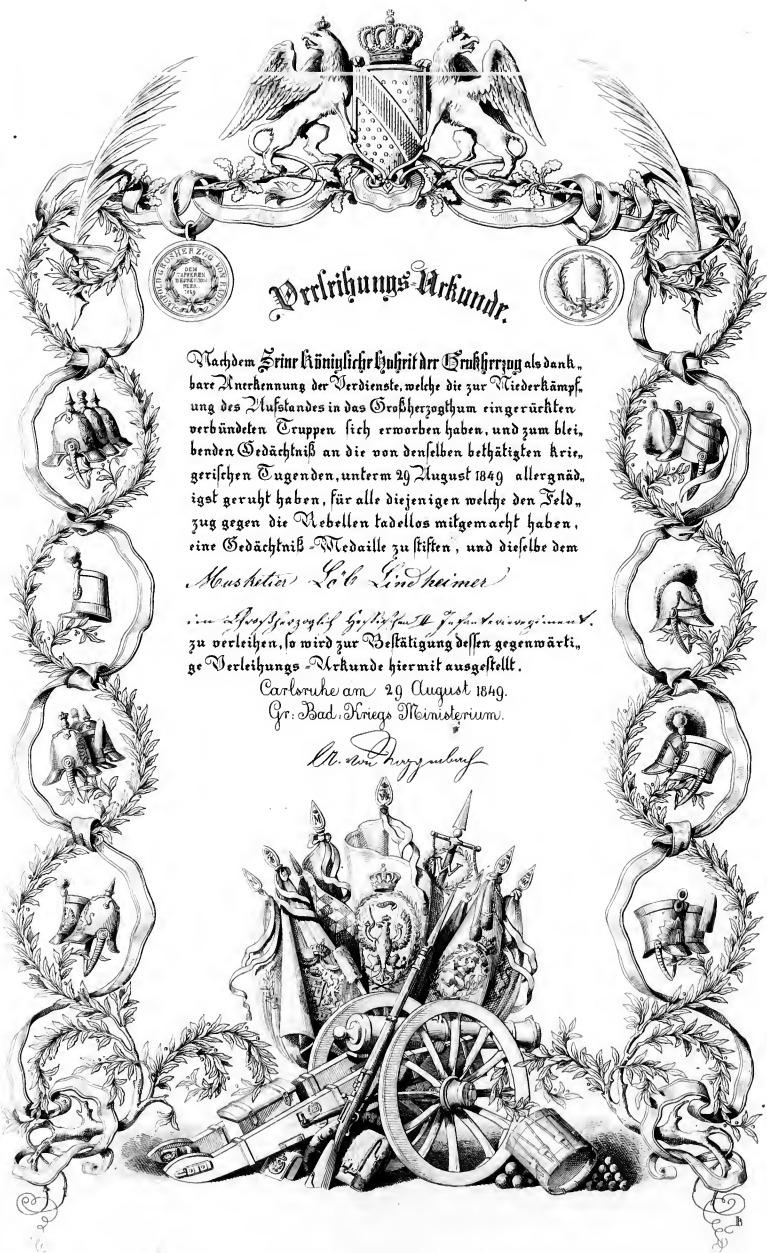 LEOPOLD GROSHERZOG VON BADEN
DEM
TAPFEREN
BEFREIUNGS
HEER
1849
Verleihungs-Urkunde.
Nachdem Seine Königliche Hoheit der Großherzog als dank„
bare Anerkennung der Verdienste, welche die zur Niederkämpf„
ung des Aufstandes in das Großherzogthum eingerückten
verbündeten Truppen sich erworben haben, und zum blei„
benden Gedächtniß an die von denselben bethätigten krie„
gerischen Tugenden, unterm 29 August 1849 allergnäd„
igst geruht haben, für alle diejenigen welche den Feld„
zug gegen die Rebellen tadellos mitgemacht haben,
eine Gedächtniß-Medaille zu stiften, und dieselbe dem
Musketier Löb Lindheimer
im Großherzoglich Hessischen II Infanterieregiment.
zu verleihen, so wird zur Bestätigung dessen gegenwärti„
ge Verleihungs-Urkunde hiermit ausgestellt.
Carlsruhe am 29 August 1849.
Gr: Bad: Kriegs Ministerium.
A. von Roggenbach